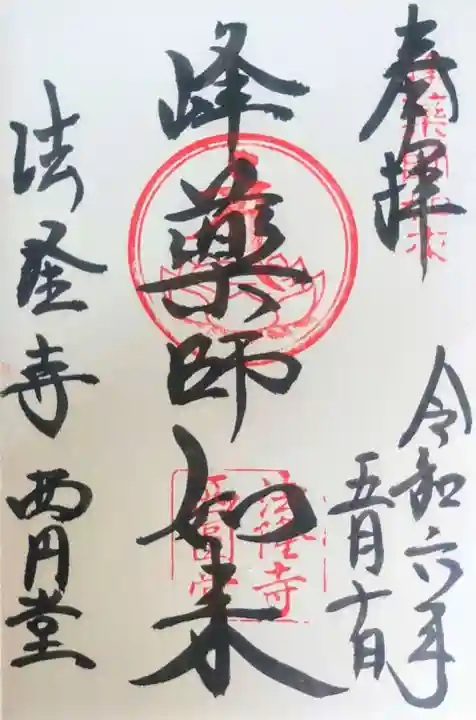 奉拝
令和六年
五月十日
峰薬師如来
法隆寺 西円堂
法隆寺
西圓堂